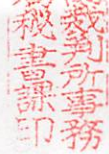 裁判所事務
秘書課印